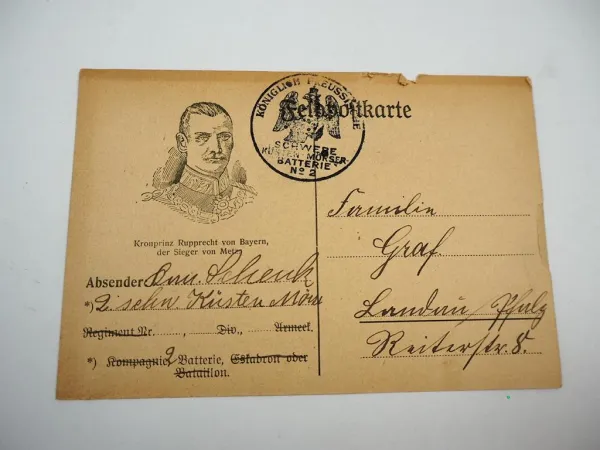 KÖNIGLICH PREUSSISCHE
SCHWERE
KÜSTEN MÖRSER-
BATTERIE
No 2
Feldpostkarte
Kronprinz Rupprecht von Bayern,
der Sieger von Metz
Absender Schenk
*) 2. schw. Küsten Mörs
Regiment Nr. , Div., Armeek.
*) Kompagnie 2 Batterie, Eskadron oder
Bataillon.
Familie
Graf.
Landau, Pfalz
Reiterstr. 8.